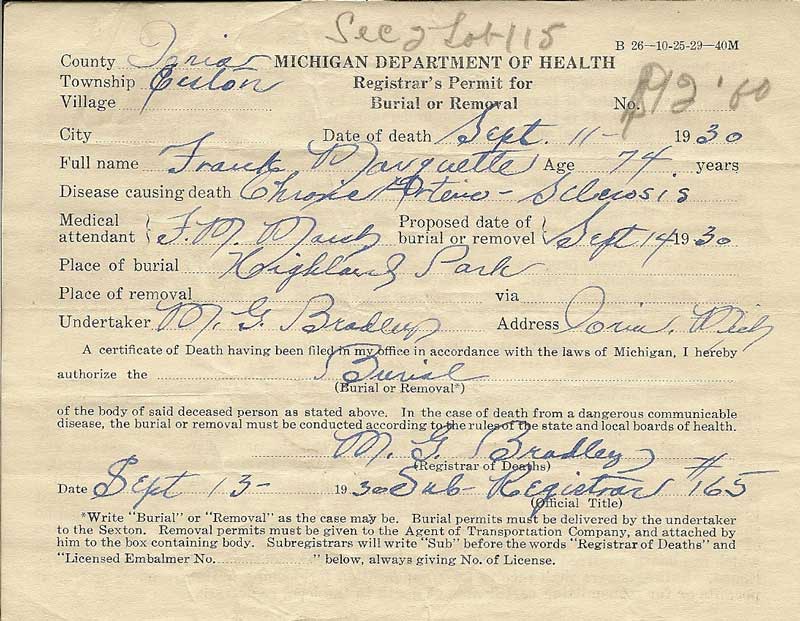 Sec 2 Lot 115
B 26—10-25-29—40M
County Ionia MICHIGAN DEPARTMENT OF HEALTH
Township Easton Registrar's Permit for
Village Burial or Removal No. $12.00
City Date of death Sept. 11- 1930
Full name Frank Marquette Age 74 years
Disease causing death Chronic Arterio-Sclerosis
Medical attendant F. M. Marsh Proposed date of burial or removel Sept 14 1930
Place of burial Highland Park
Place of removal via
Undertaker M. G. Bradley Address Ionia, Mich
A certificate of Death having been filed in my office in accordance with the laws of Michigan, I hereby
authorize the Burial
(Burial or Removal*)
of the body of said deceased person as stated above. In the case of death from a dangerous communicable
disease, the burial or removal must be conducted according to the rules of the state and local boards of health.
M. G. Bradley
(Registrar of Deaths)
Date Sept 13- 1930 Sub-Registrar #165
(Official Title)
*Write "Burial" or "Removal" as the case may be. Burial permits must be delivered by the undertaker
to the Sexton. Removal permits must be given to the Agent of Transportation Company, and attached by
him to the box containing body. Subregistrars will write "Sub" before the words "Registrar of Deaths" and
"Licensed Embalmer No. " below, always giving No. of License.